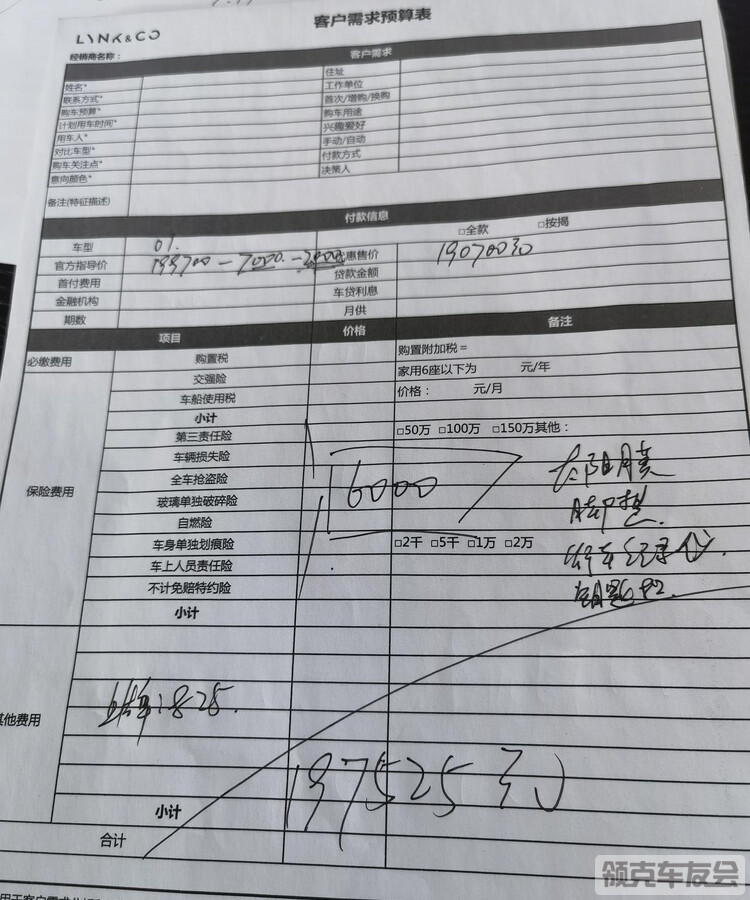 LYNK&CO
客户需求预算表
经销商名称：
客户需求
姓名*
住址
联系方式*
工作单位
购车预算*
首次/增购/换购
计划用车时间*
购车用途
用车人*
兴趣爱好
对比车型*
手动/自动
购车关注点*
付款方式
意向颜色*
决策人
备注(特征描述)
付款信息
车型
01.
□全款 □按揭
官方指导价
199700-7000.-2000
惠售价
190700元
首付费用
贷款金额
金融机构
车贷利息
期数
月供
项目
价格
备注
必缴费用
购置税
购置附加税=
交强险
家用6座以下为 元/年
车船使用税
价格： 元/月
小计
保险费用
第三责任险
□50万 □100万 □150万其他：
车辆损失险
全车抢盗险
6000
太阳膜
玻璃单独破碎险
脚垫.
自燃险
车身单独划痕险
□2千 □5千 □1万 □2万
行车记录仪.
车上人员责任险
不计免赔特约险
小计
其他费用
上牌:825.
197525元
小计
合计
领克车友会